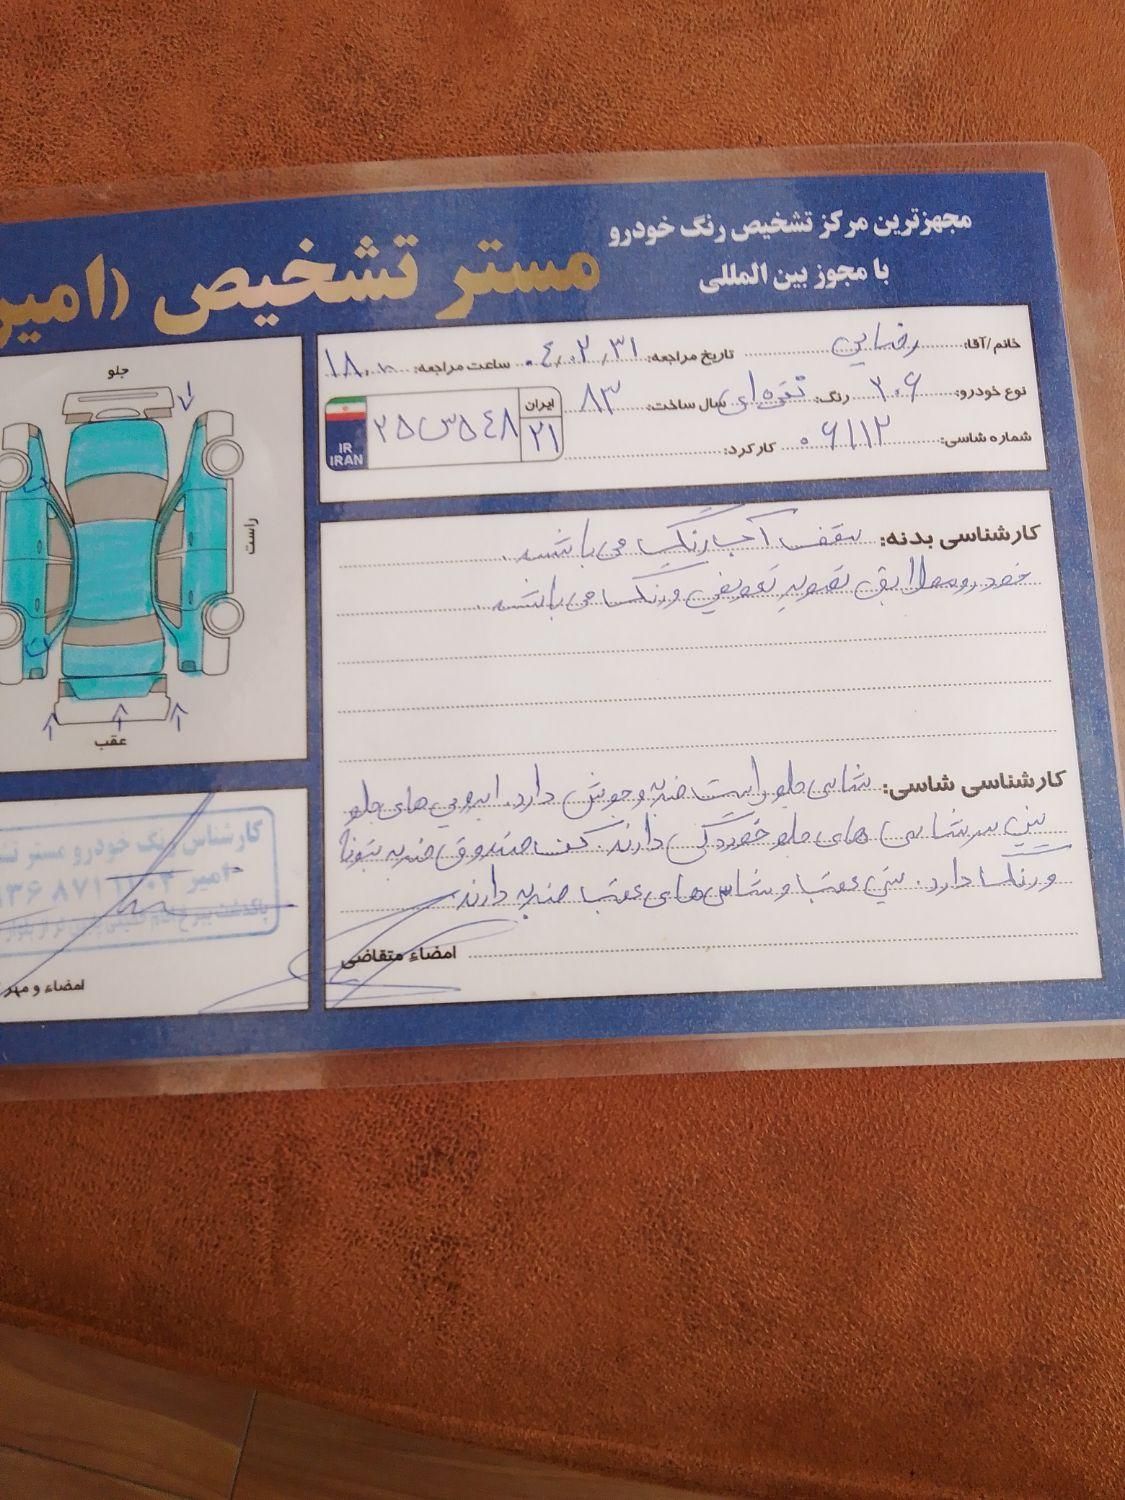 مجهزترین مرکز تشخیص رنگ خودرو
با مجوز بین المللی
مستر تشخیص (امیر
خانم/آقا: رضایی تاریخ مراجعه: ۰۴/۰۲/۳۱ ساعت مراجعه: ۱۸:۰۰
نوع خودرو: ۲۰۶ رنگ: نقره‌ای سال ساخت: ۸۳
ایران ۲۱ ۵۴۸ س ۲۵
IR
IRAN
شماره شاسی: ۰۶۱۱۲ کارکرد:
جلو
راست
عقب
کارشناسی بدنه: سقف آبرنگ می باشد.
خودرو مطابق تصویر تعویض و رنگ می باشد.
کارشناسی شاسی: شاسی جلو راست ضربه و جوش دارد. ابرویی های جلو
سینی سرشاسی های جلو خوردگی دارند. کف صندوق ضربه بتونه
و رنگ دارد. سینی عقب و شاسی های عقب ضربه دارند
امضاء متقاضی
کارشناس رنگ خودرو مستر
امیر
امضاء و مهر